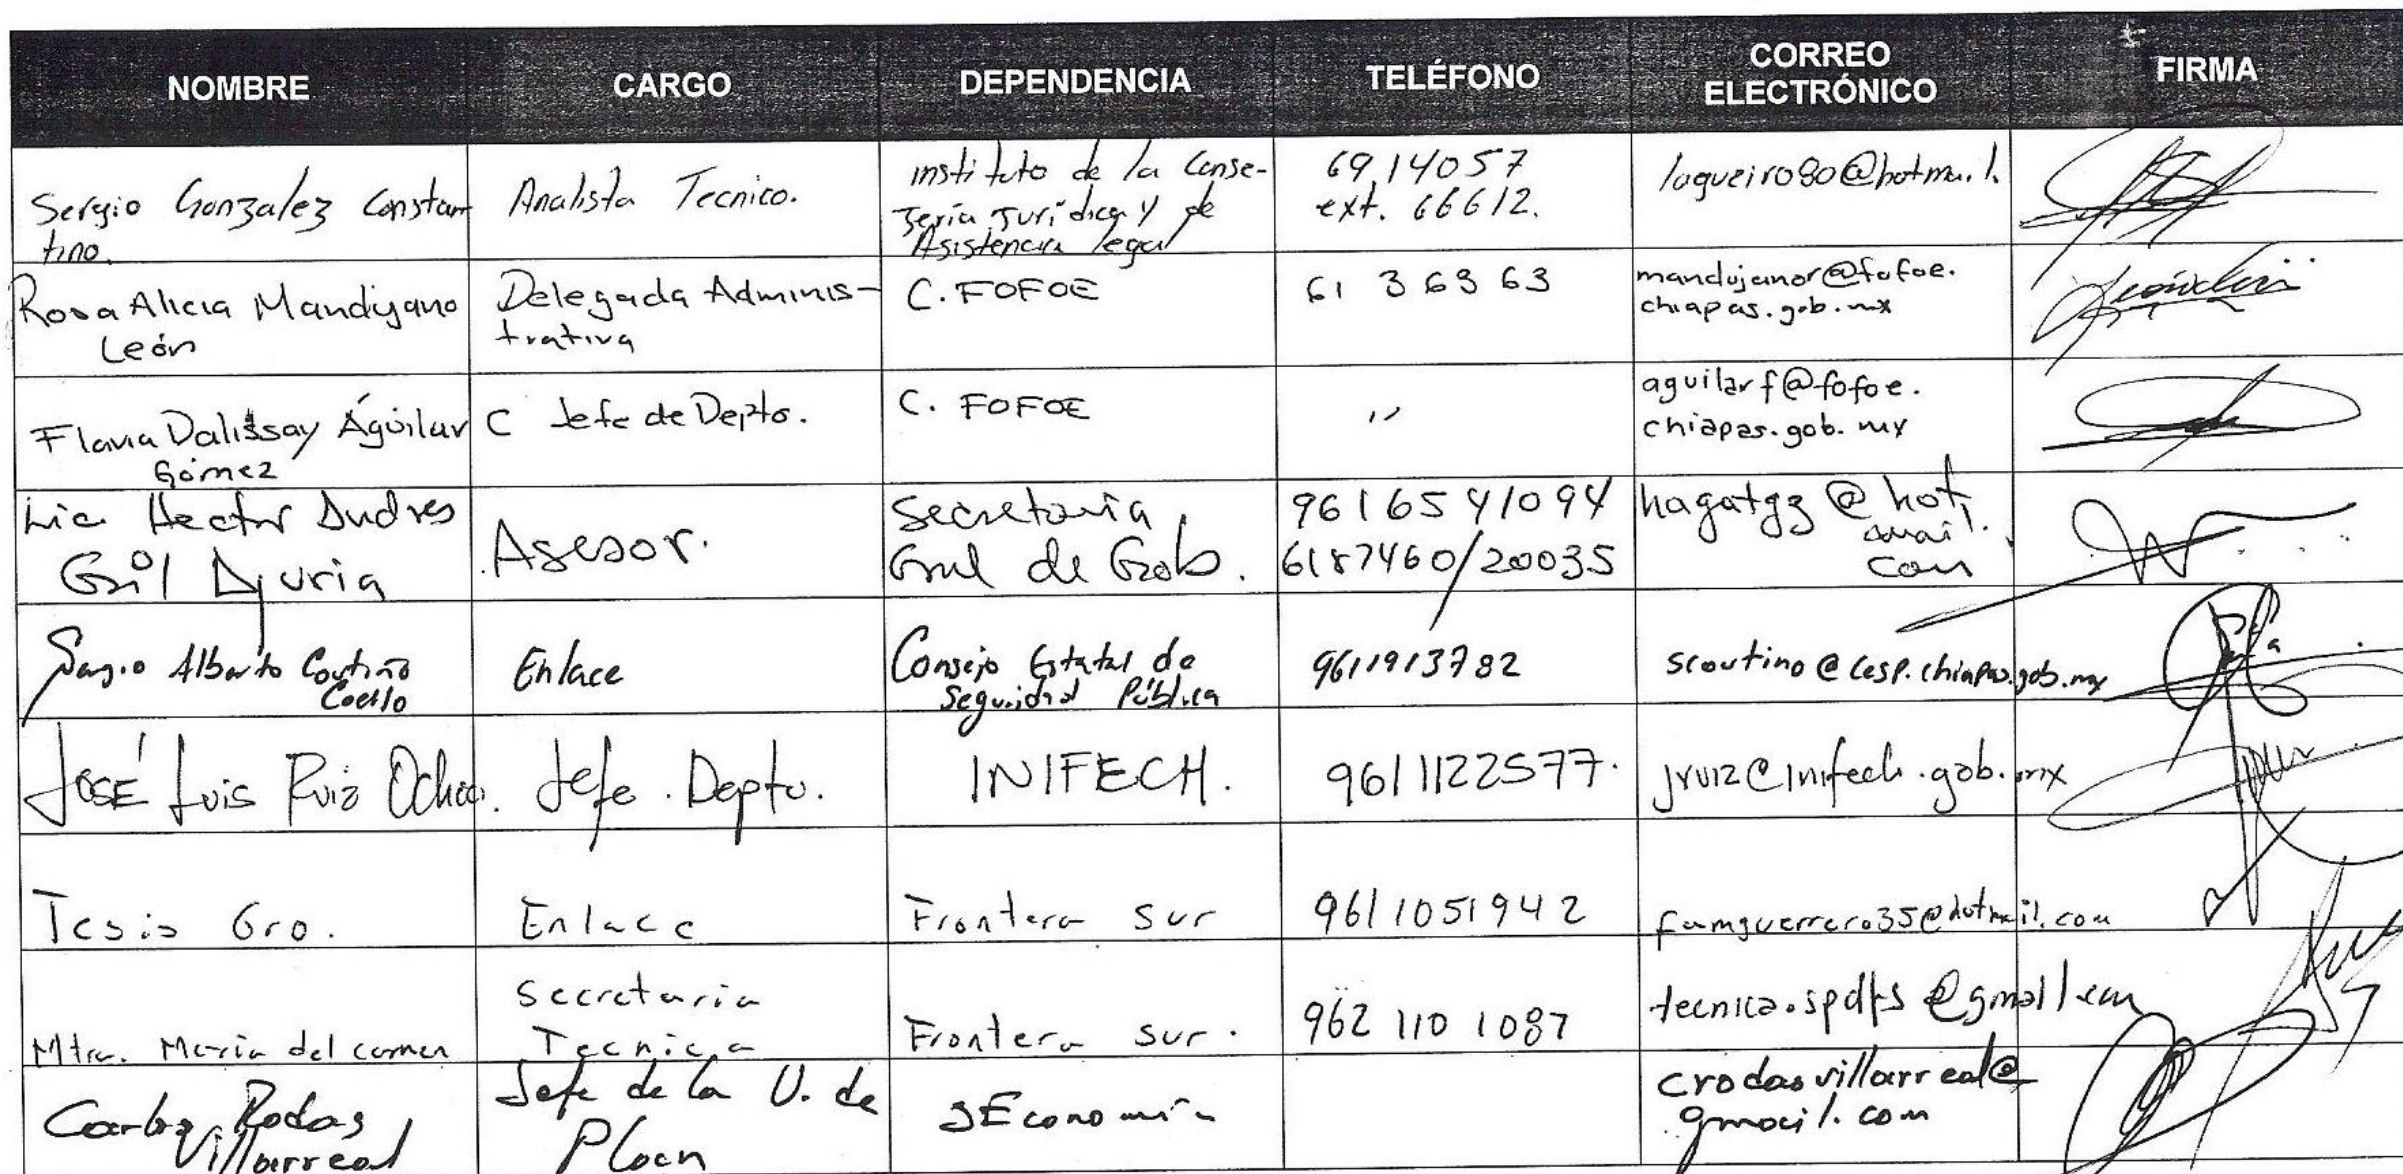 NOMBRE CARGO DEPENDENCIA TELÉFONO CORREO ELECTRÓNICO FIRMA
Sergio Gonzalez Constan
tino.
Analista Tecnico.
instituto de la Conse-
jería Jurídica y de
Asistencia legal
6914057
ext. 66612.
laqueiro80@hotmail.
Rosa Alicia Mandujano
León
Delegada Adminis-
trativa
C. FOFOE
61 3 63 63
mandujanor@fofoe.
chiapas.gob.mx
Flavia Dalissay Aguilar
Gómez
C Jefe de Depto.
C. FOFOE
"
aguilarf@fofoe.
chiapas.gob.mx
Lic. Hector Andres
Gail
Asesor.
Secretaria
Gral de Gob.
9616541094
6187460/20035
hagatgz@hot
mail.
com
Sergio Alberto Coutiño
Coello
Enlace
Consejo Estatal de
Seguridad Pública
9611913782
scoutino@cesp.chiapas.gob.mx
JOSÉ Luis Ruiz Ochoa.
Jefe. Depto.
INIFECH.
9611122577.
jruiz@inifech.gob.mx
Gro.
Enlace
Frontera Sur
9611051942
famguerrero35@hotmail.com
Mtra. Maria del carmen
Secretaria
Tecnica
Frontera Sur.
962 110 1087
tecnica.spdfs@gmail.com
Carlos Rodas
Villarreal
Jefe de la U. de
Plaen
SEconomía
crodasvillarreal@
gmail.com